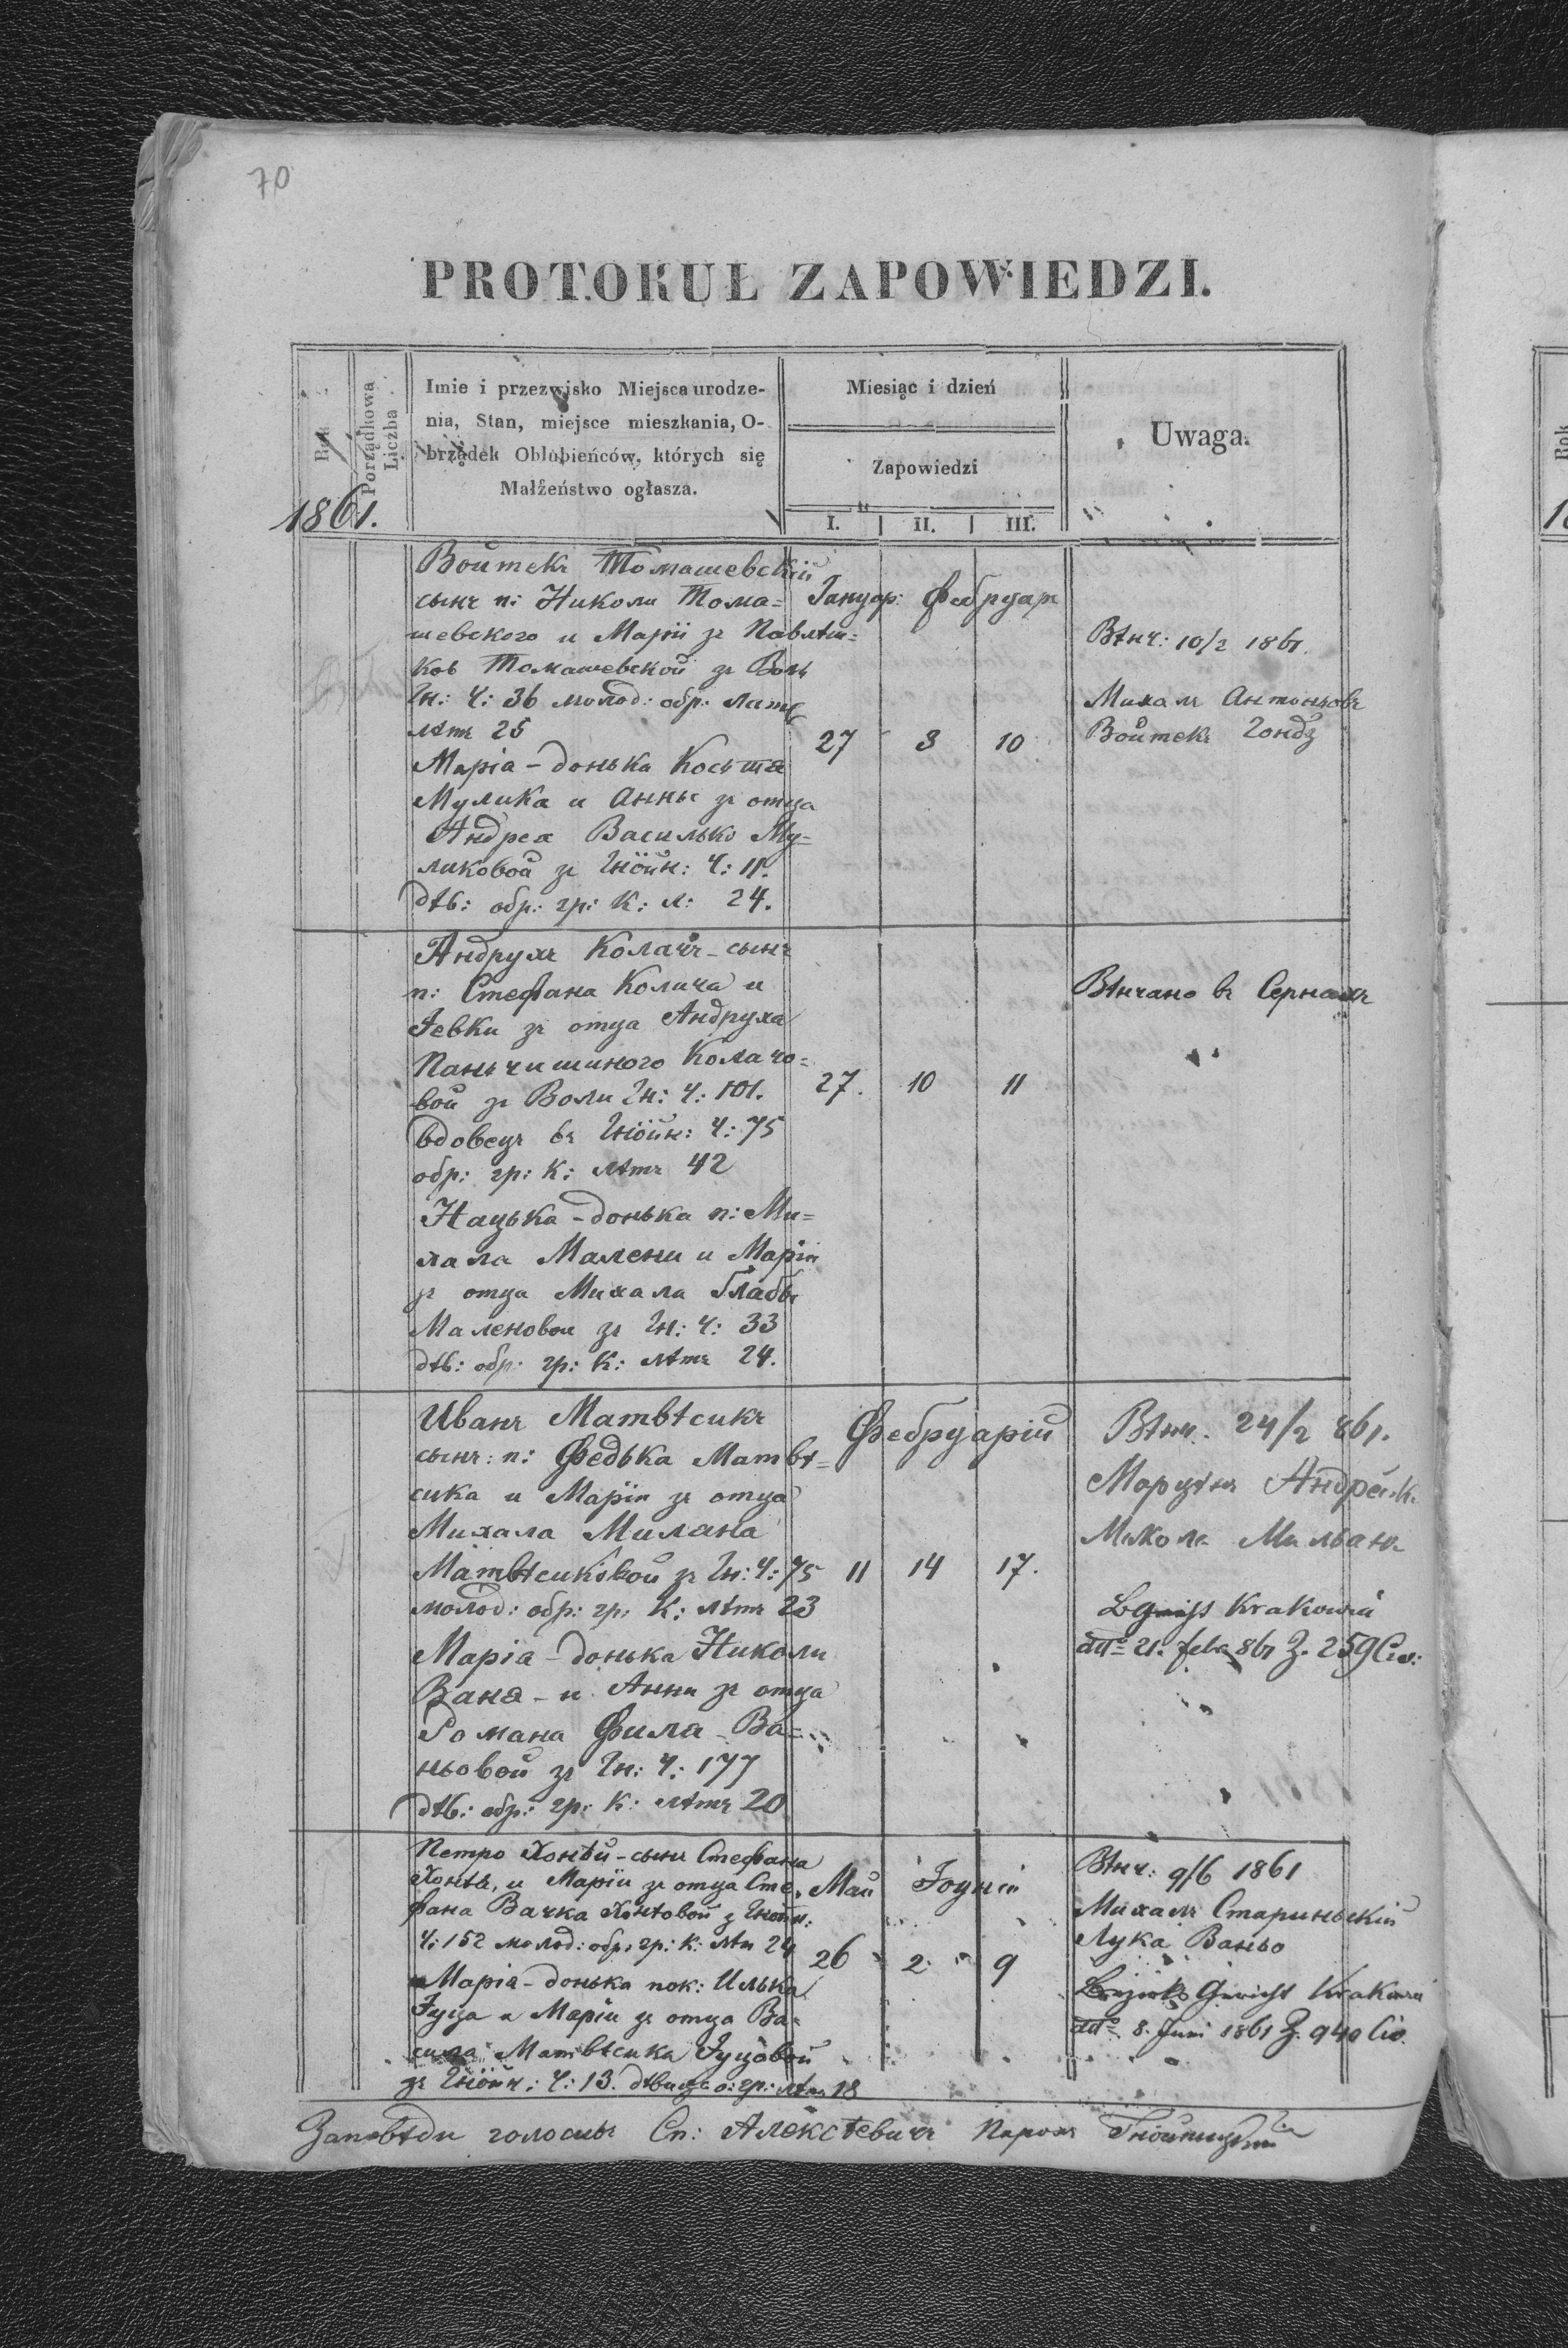 70
PROTOKUŁ ZAPOWIEDZI.
Rok
Porządkowa
Liczba
Imie i przezwisko Miejsca urodze-
nia, Stan, miejsce mieszkania, O-
brządek Oblubieńców, których się
Małżeństwo ogłasza.
Miesiąc i dzień
Zapowiedzi
I. II. III.
Uwaga.
1861.
Войтекъ Томашевскій
сынъ п: Николи Тома=
шевского и Маріи зъ Павлѣш=
ковъ Томашевской зъ Воли
Гн: Ч: 36 молод: обр: лат
лѣтъ 25
Марія - донька Костя
Мулика и Анны зъ отца
Андрея Василько Му=
ликовой зъ Гнойн: Ч: 11.
дѣв: обр: гр: К: л: 24.
Януар: Фебруар
27 3 10
Вѣнч: 10/2 1861.
Михалъ Антоновъ
Войтекъ Гондз
Андрухъ Колачъ - сынъ
п: Стефана Колача и
Іевки зъ отца Андруха
Паньчишиного Колачо=
вой зъ Воли Гн: Ч: 101.
вдовецъ въ Гнойн: Ч: 75
обр: гр: К: лѣтъ 42
Нацька - донька п: Ми=
хала Малени и Маріи
зъ отца Михала Глабы
Маленовои зъ Гн: Ч: 33
дѣв: обр: гр: К: лѣтъ 24.
27. 10 11
Вѣнчано въ Сернахъ
Иванъ Матвѣсикъ
сынъ: п: Федька Матвѣ=
сика и Маріи зъ отца
Михала Милана
Матвѣсиковой зъ Гн: Ч: 75
молод: обр: гр: К: лѣтъ 23
Марія - донька Николи
Ваня - и Анни зъ отца
Романа Фила - Ва=
ньовой зъ Гн: Ч: 177
дѣв: обр: гр: К: лѣтъ 20
Фебруарій
11 14 17.
Вѣнч. 24/2 861.
Андрей
Микола
Krakowiec
ddto 21. Feba 861 Z. 259 Civ:
Петро Хонтѣй - сынъ Стефана
и Маріи зъ отца Сте=
фана Вачка Хонтовой з Гнойн:
Ч: 152 молод: обр: гр: К: лѣт 24
Марія - донька пок: Илька
Гуца и Маріи зъ отца Ва=
силя Матвѣсика Гуцовой
зъ Гнойн: Ч: 13. дѣвица о: гр: лѣтъ 18
Май Іоуній
26 2 9
Вѣнч: 9/6 1861
Михалъ Стариньскій
Лука Ваньо
Gericht Krakowiec
ddto 8. Juni 1861 Z. 940 Civ.
Заповѣди голосивъ Сп: Алексѣевичъ Парохъ